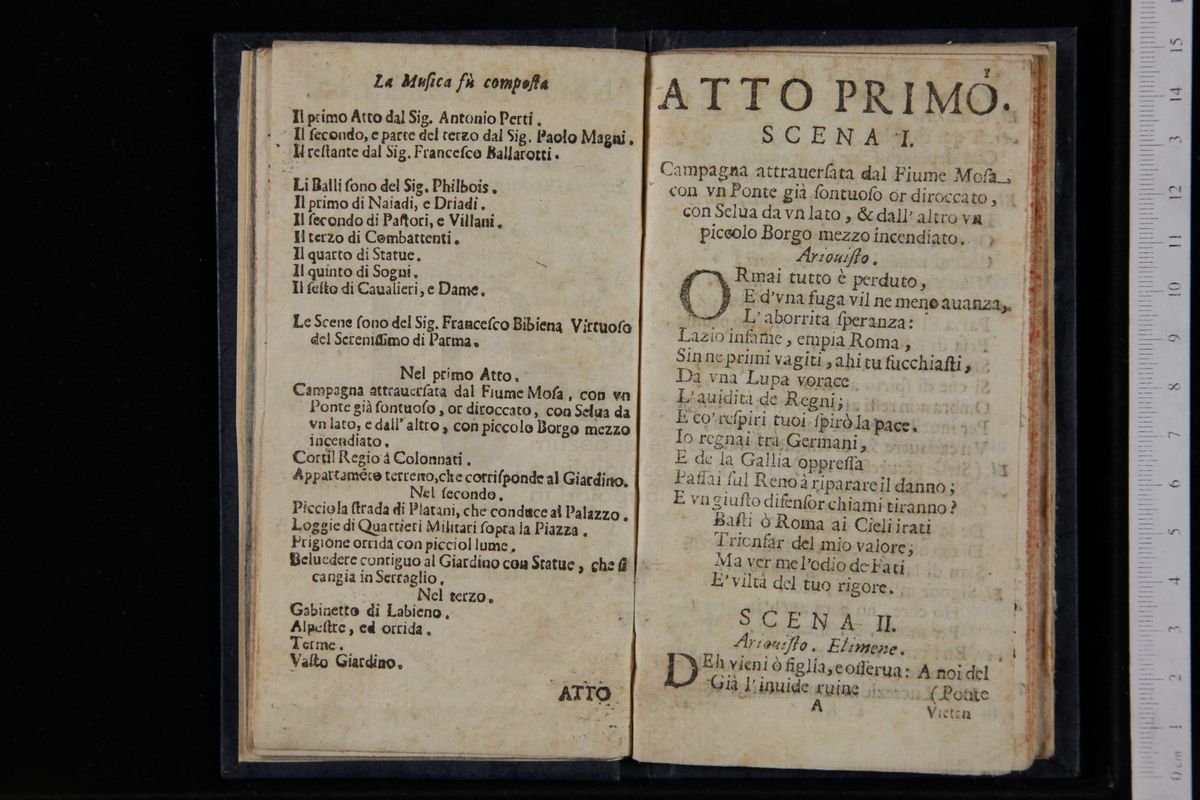 La Muſica fù compoſta
Il primo Atto dal Sig. Antonio Perti.
Il ſecondo, e parte del terzo dal Sig. Paolo Magni.
Il reſtante dal Sig. Franceſco Ballarotti.
Li Balli ſono del Sig. Philbois.
Il primo di Naiadi, e Driadi.
Il ſecondo di Paſtori, e Villani.
Il terzo di Combattenti.
Il quarto di Statue.
Il quinto di Sogni.
Il ſeſto di Caualieri, e Dame.
Le Scene ſono del Sig. Franceſco Bibiena Virtuoſo
del Sereniſſimo di Parma.
Nel primo Atto.
Campagna attrauerſata dal Fiume Moſa, con vn
Ponte già ſontuoſo, or diroccato, con Selua da
vn lato, e dall'altro, con piccolo Borgo mezzo
incendiato.
Cortil Regio à Colonnati.
Appartamẽto terreno, che corriſponde al Giardino.
Nel ſecondo.
Picciola ſtrada di Platani, che conduce al Palazzo.
Loggie di Quartieri Militari ſopra la Piazza.
Prigione orrida con picciol lume.
Beluedere contiguo al Giardino con Statue, che ſi
cangia in Serraglio.
Nel terzo.
Gabinetto di Labieno.
Alpeſtre, ed orrida.
Terme.
Vaſto Giardino.
ATTO
ATTO PRIMO.
SCENA I.
Campagna attrauerſata dal Fiume Moſa,
con vn Ponte già ſontuoſo or diroccato,
con Selua da vn lato, & dall'altro vn
piccolo Borgo mezzo incendiato.
Ariouiſto.
ORmai tutto è perduto,
E d'vna fuga vil ne meno auanza,
L'aborrita ſperanza:
Lazio infame, empia Roma,
Sin ne primi vagiti, ahi tu ſucchiaſti,
Da vna Lupa vorace
L'auidità de Regni;
E co' reſpiri tuoi ſpirò la pace.
Io regnai tra Germani,
E de la Gallia oppreſſa
Paſſai ſul Reno à riparare il danno;
E vn giuſto difenſor chiami tiranno?
Baſti ò Roma ai Cieli irati
Trionfar del mio valore;
Ma ver me l'odio de Fati
E' viltà del tuo rigore.
SCENA II.
Ariouiſto. Elimene.
DEh vieni ò figlia, e oſſerua: A noi del
Già l'inuide ruine (Ponte
A Vietan